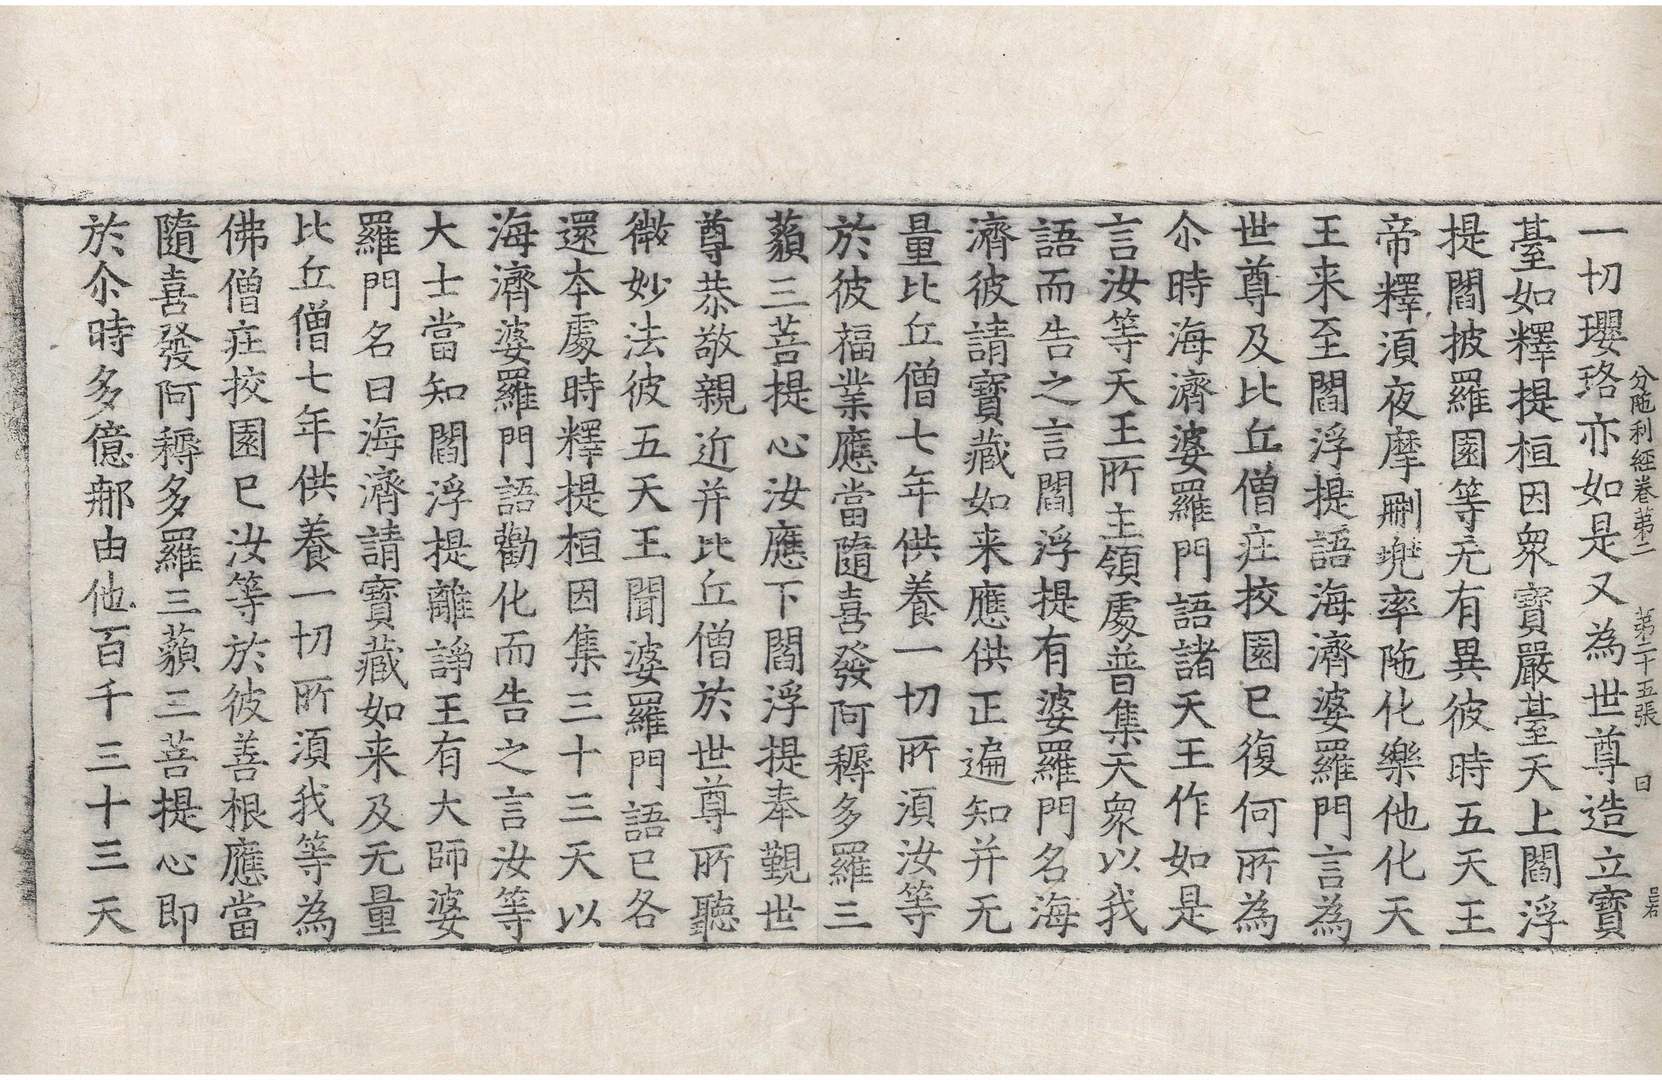 分陁利經卷第二 第二十五張 日
一切瓔珞亦如是又為世尊造立寶
臺如釋提桓因衆寶嚴臺天上閻浮
提閻披羅園等无有異彼時五天王
帝釋湏夜摩刪兜率陁化樂他化天
王来至閻浮提語海濟婆羅門言為
世尊及比丘僧庄挍園已復何所為
尒時海濟婆羅門語諸天王作如是
言汝等天王所主領處普集天衆以我
語而告之言閻浮提有婆羅門名海
濟彼請寶藏如来應供正遍知并无
量比丘僧七年供養一切所湏汝等
於彼福業應當隨喜發阿耨多羅三
藐三菩提心汝應下閻浮提奉覲世
尊恭敬親近并比丘僧於世尊所聽
微妙法彼五天王聞婆羅門語已各
還本處時釋提桓因集三十三天以
海濟婆羅門語勸化而告之言汝等
大士當知閻浮提離諍王有大師婆
羅門名曰海濟請寶藏如来及无量
比丘僧七年供養一切所湏我等為
佛僧庄挍園已汝等於彼善根應當
隨喜發阿耨多羅三藐三菩提心即
於尒時多億那由他百千三十三天